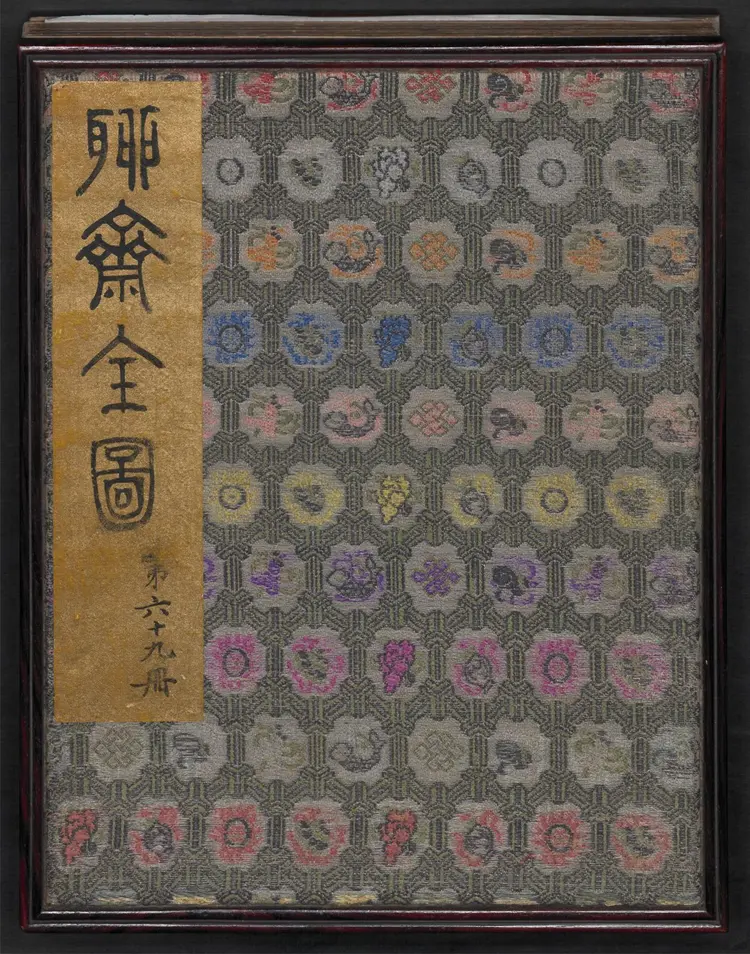 聊齋全圖
第六十九冊